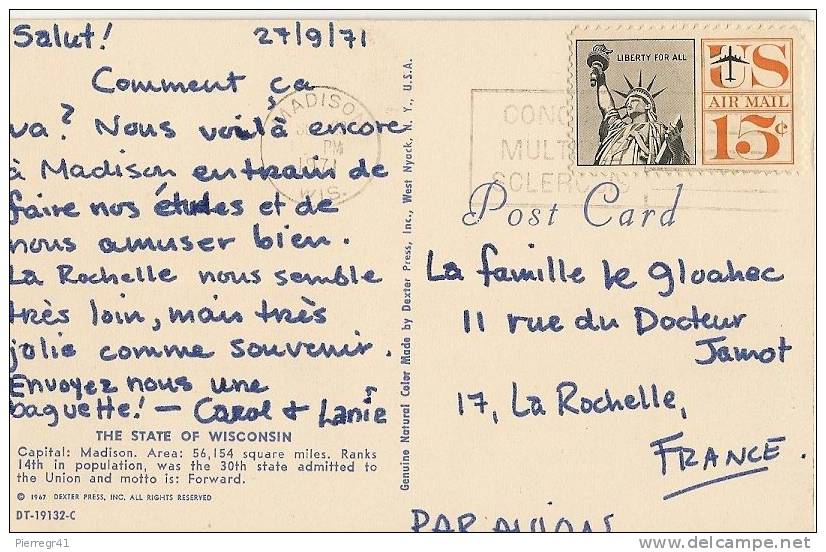 Salut! 27/9/71
Comment ça
va? Nous voilà encore
à Madison en train de
faire nos études et de
nous amuser bien.
La Rochelle nous semble
très loin, mais très
jolie comme souvenir.
Envoyez nous une
baguette! — Carol + Lanie
THE STATE OF WISCONSIN
Capital: Madison. Area: 56,154 square miles. Ranks
14th in population, was the 30th state admitted to
the Union and motto is: Forward.
© 1967 DEXTER PRESS, INC. ALL RIGHTS RESERVED
DT-19132-C
Genuine Natural Color Made by Dexter Press, Inc., West Nyack, N. Y., U.S.A.
MADISON
PM
1971
WIS.
LIBERTY FOR ALL
US
AIR MAIL
15¢
Post Card
La famille le gloahec
11 rue du Docteur
Jamot
17, La Rochelle,
FRANCE.
PAR AVION
Pierregr41
delcampe.net